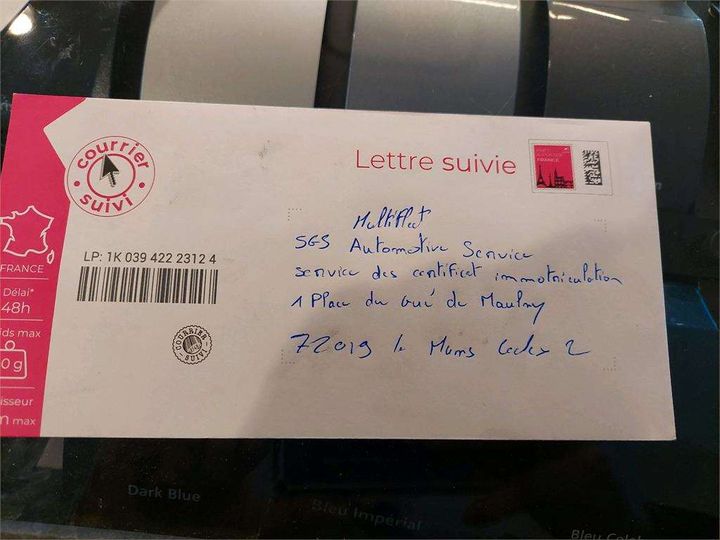 courrier
suivi
Lettre suivie
FRANCE
LP: 1K 039 422 2312 4
COURRIER
SUIVI
FRANCE
Délai*
48h
ids max
0 g
isseur
m max
Multiflet
SGS Automotive Service
service des certificat immatriculation
1 Place du Gué de Maulny
72019 le Mans Cedex 2
Dark Blue
Bleu Impérial